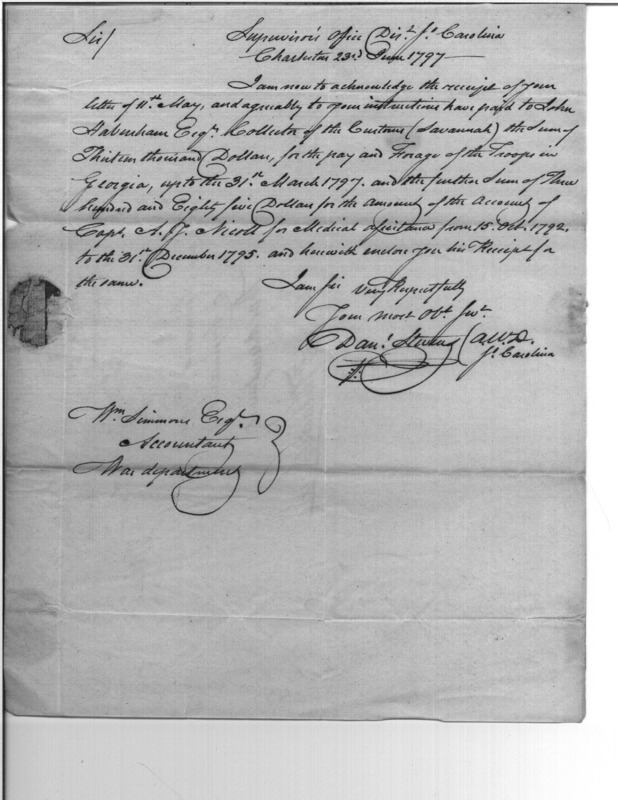 Sir/ Supervisor's Office Dist. So. Carolina
Charleston 23rd June 1797
I am now to acknowledge the receipt of your
letter of 11th May, and agreably to your instructions have paid to John
Habersham Esqr. Collector of the Customs (Savannah) the Sum of
Thirteen thousand Dollars, for the pay and Forage of the Troops in
Georgia, up to the 31st March 1797. and the further Sum of Three
hundred and Eighty five Dollars for the amount of the Account of
Capt. A. Y. Nicoll for Medical assistance from 15. Oct. 1792.
to the 31st December 1795. and herewith enclose you his Receipt for
the same.
I am Sir Very Respectfully
Your most Obt. Servt.
Danl. Stevens A.W.D.
So. Carolina
Wm. Simmons Esqr.
Accountant
War department